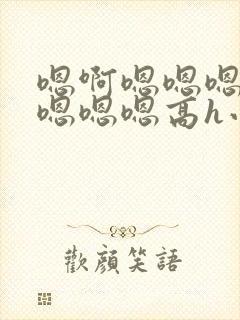 嗯啊嗯嗯嗯
嗯嗯嗯高h
歡顏笑語